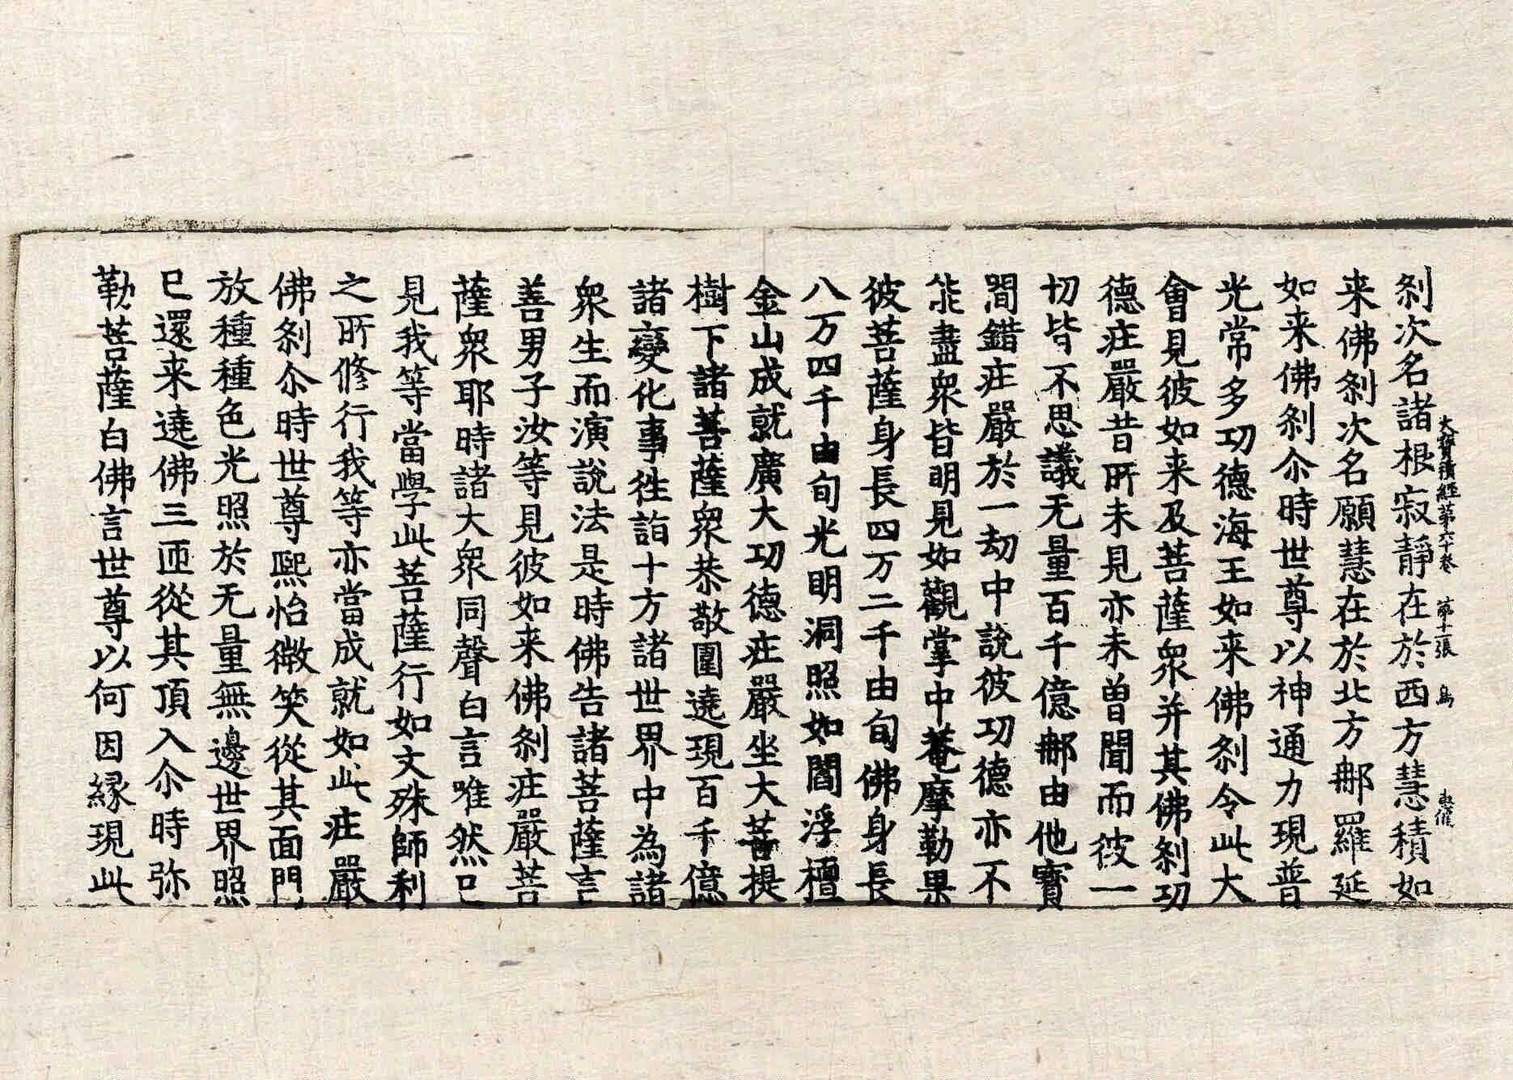 大寶積經第六十卷 第十二張 鳥
刹次名諸根寂靜在於西方慧積如
来佛刹次名願慧在於北方郍羅延
如来佛刹尒時世尊以神通力現普
光常多功德海王如来佛刹令此大
會見彼如来及菩薩衆并其佛刹功
德庄嚴昔所未見亦未曽聞而彼一
切皆不思議无量百千億郍由他寳
間錯庄嚴於一劫中說彼功德亦不
能盡衆皆明見如觀掌中菴摩勒果
彼菩薩身長四万二千由旬佛身長
八万四千由旬光明洞照如閻浮檀
金山成就廣大功德庄嚴坐大菩提
樹下諸菩薩衆恭敬圍遶現百千億
諸變化事徃詣十方諸世界中為諸
衆生而演說法是時佛告諸菩薩言
善男子汝等見彼如来佛刹庄嚴菩
薩衆耶時諸大衆同聲白言唯然已
見我等當學此菩薩行如文殊師利
之所修行我等亦當成就如此庄嚴
佛刹尒時世尊熙怡微笑從其面門
放種種色光照於无量無邊世界照
已還来遶佛三匝從其頂入尒時弥
勒菩薩白佛言世尊以何因緣現此